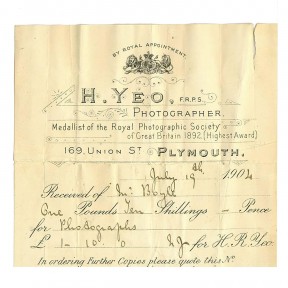 BY ROYAL APPOINTMENT
H. YEO, F.R.P.S.
PHOTOGRAPHER.
Medallist of the Royal Photographic Society
of Great Britain 1892. (Highest Award)
169, UNION ST PLYMOUTH.
July 19th 1904
Received of Mr Boyle
One Pounds Ten Shillings – Pence
for Photographs
£ 1 - 10. 0 for H. R. Yeo
In ordering Further Copies please quote this No